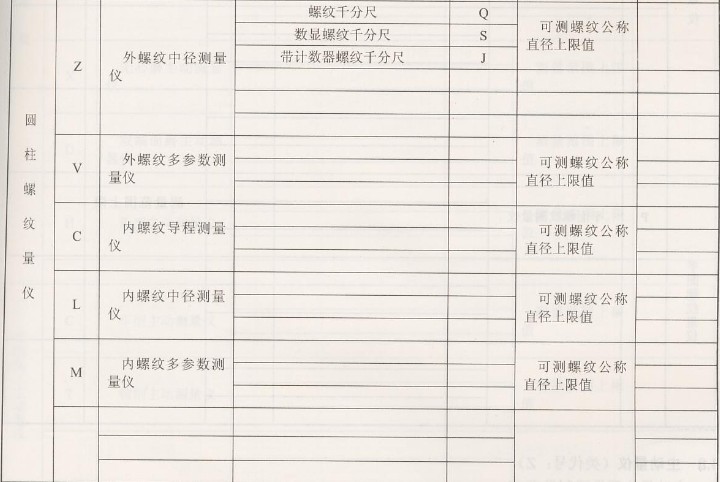 圆柱螺纹量仪
Z
外螺纹中径测量
仪
螺纹千分尺
Q
数显螺纹千分尺
S
带计数器螺纹千分尺
J
可测螺纹公称
直径上限值
V
外螺纹多参数测
量仪
可测螺纹公称
直径上限值
C
内螺纹导程测量
仪
可测螺纹公称
直径上限值
L
内螺纹中径测量
仪
可测螺纹公称
直径上限值
M
内螺纹多参数测
量仪
可测螺纹公称
直径上限值